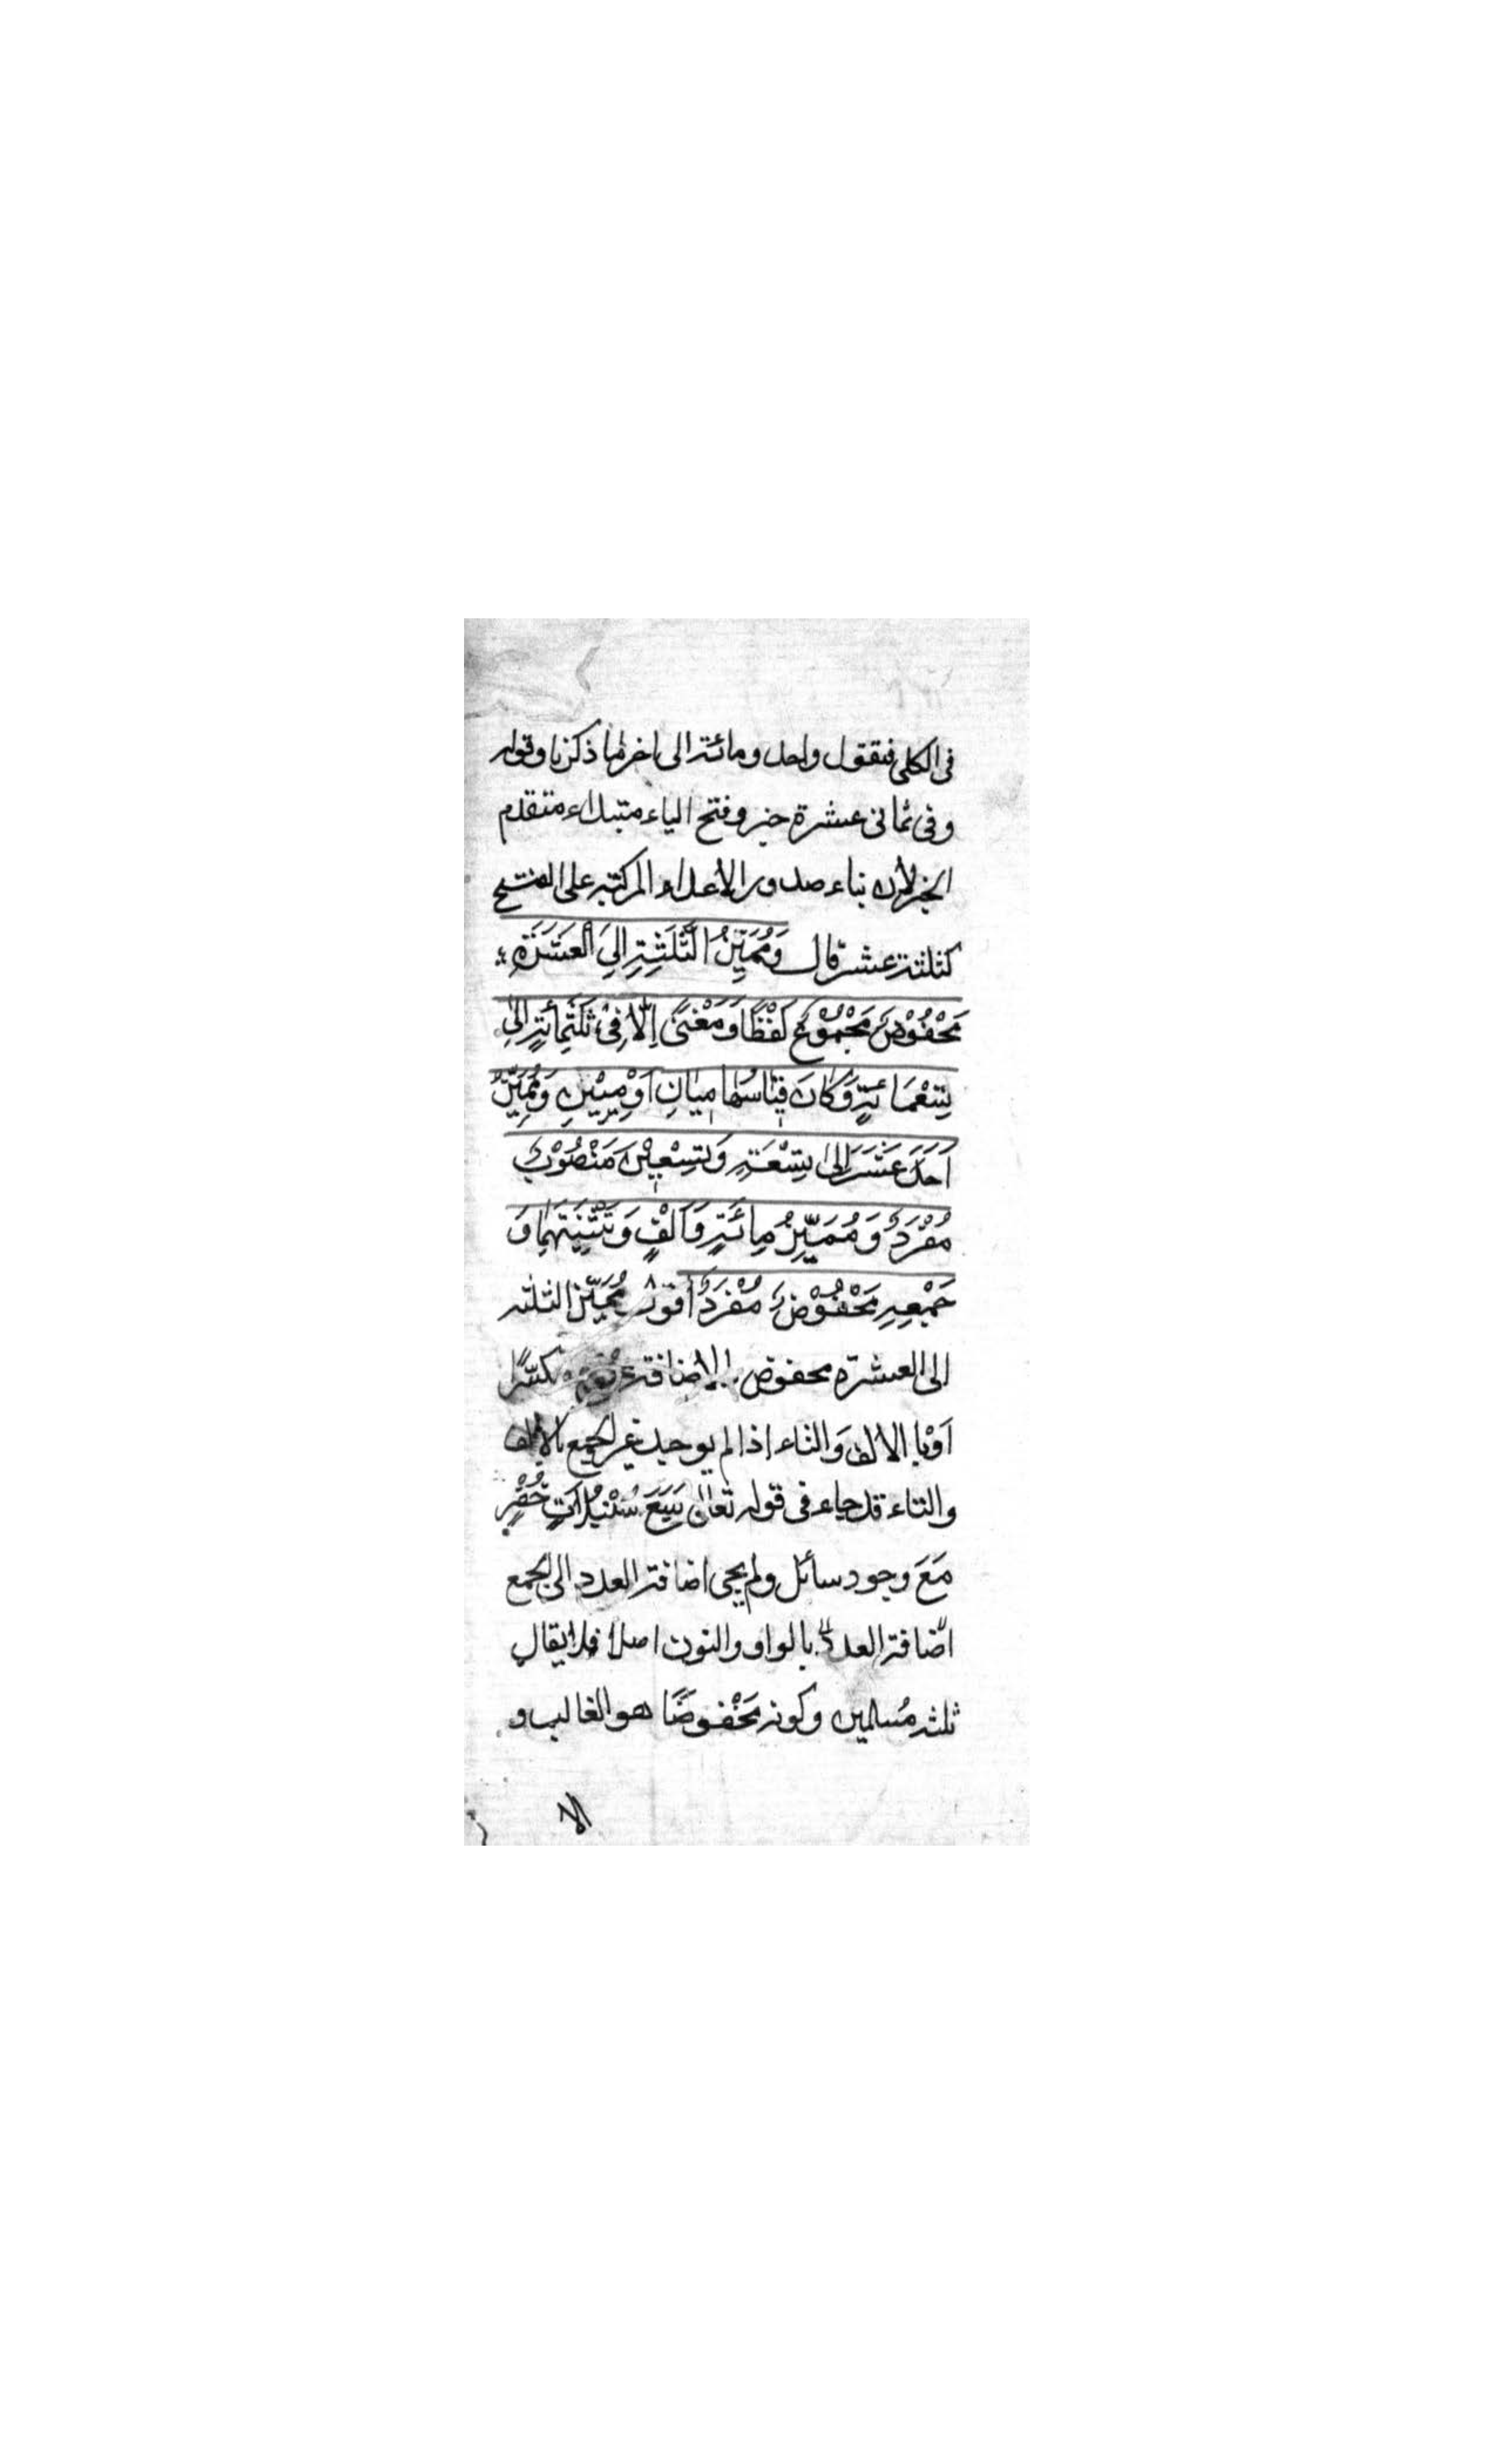 فى الكلى فتقول واحد ومائة الى اخر ما ذكرنا وقوله
وفى ثمانى عشرة خبر وفتح الياء مبتداء متقدم
الخبر لان بناء صدور الاعداد المركبة على الفتح
كثلثة عشر قال وَمُمَيِّزُ الثَّلٰثَةِ اِلىَ الْعَشَرَةِ
مَخْفُوْضٌ مَجْمُوْعٌ لَفْظًا وَمَعْنىً اِلَّا فِىْ ثَلٰثِمِائَةٍ اِلىٰ
تِسْعِمَائَةٍ وَكَانَ قِيَاسُهَا مِيَاتٍ اَوْ مِئِيْنَ وَمُمَيِّزُ
اَحَدَ عَشَرَ اِلىٰ تِسْعَةٍ وَتِسْعِيْنَ مَنْصُوْبٌ
مُفْرَدٌ وَمُمَيِّزُ مِائَةٍ وَاَلْفٍ وَتَثْنِيَتِهِمَا وَ
جَمْعِهِ مَخْفُوْضٌ مُفْرَدٌ اقول مُمَيِّز الثلثه
الى العشرة مخفوض بالاضافة مكسّرًا
اَوْ بالالف وَالتاء اذا لم يوجد غير الجمع بالالف
والتاء قد جاء فى قوله تعالى سَبْعَ سُنْبُلَاتٍ خُضْرٍ
مَعَ وجود سنابل ولم يجى اضافة العدد الى الجمع
اضافة العدد بالواو والنون اصلا فلا يقال
ثلثه مُسلمين وكونه مَخْفوضًا هو الغالب و
الا